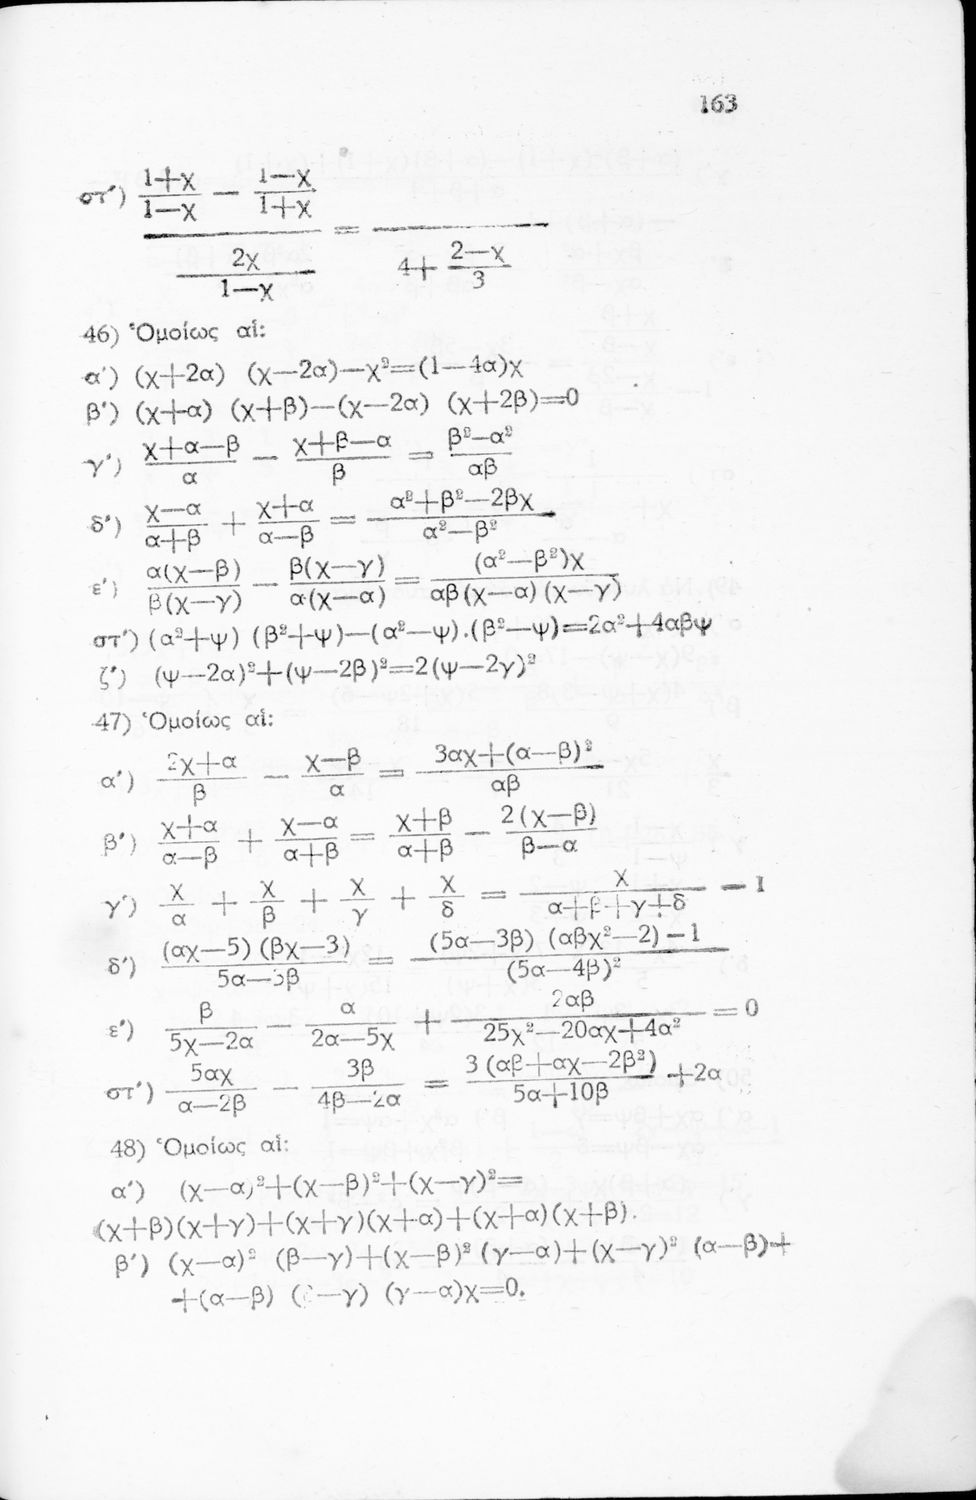 163
στ′) (1+χ)/(1—χ) — (1—χ)/(1+χ)
————— = —————
(2χ)/(1—χ) 4+ (2—χ)/3
46) Ὁμοίως αἱ:
α′) (χ+2α) (χ—2α)—χ²=(1—4α)χ
β′) (χ+α) (χ+β)—(χ—2α) (χ+2β)=0
γ′) (χ+α—β)/α — (χ+β—α)/β = (β²—α²)/(αβ)
δ′) (χ—α)/(α+β) + (χ+α)/(α—β) = (α²+β²—2βχ)/(α²—β²)
ε′) α(χ—β)/β(χ—γ) — β(χ—γ)/α(χ—α) = (α²—β²)χ/αβ(χ—α)(χ—γ)
στ′) (α²+ψ) (β²+ψ)—(α²—ψ).(β²—ψ)=2α²+4αβψ
ζ′) (ψ—2α)²+(ψ—2β)²=2(ψ—2γ)²
47) Ὁμοίως αἱ:
α′) (2χ+α)/β — (χ—β)/α = (3αχ+(α—β)²)/(αβ)
β′) (χ+α)/(α—β) + (χ—α)/(α+β) = (χ+β)/(α+β) — 2(χ—β)/(β—α)
γ′) χ/α + χ/β + χ/γ + χ/δ = χ/(α+β+γ+δ) —1
δ′) (αχ—5) (βχ—3)/(5α—3β) = (5α—3β) (αβχ²—2)—1/(5α—4β)²
ε′) β/(5χ—2α) — α/(2α—5χ) + 2αβ/(25χ²—20αχ+4α²) =0
στ′) 5αχ/(α—2β) — 3β/(4β—2α) = 3(αβ+αχ—2β²)/(5α+10β) +2α
48) Ὁμοίως αἱ:
α′) (χ—α)²+(χ—β)²+(χ—γ)²=
(χ+β)(χ+γ)+(χ+γ)(χ+α)+(χ+α)(χ+β).
β′) (χ—α)² (β—γ)+(χ—β)² (γ—α)+(χ—γ)² (α—β)+
+(α—β) (β—γ) (γ—α)χ=0.